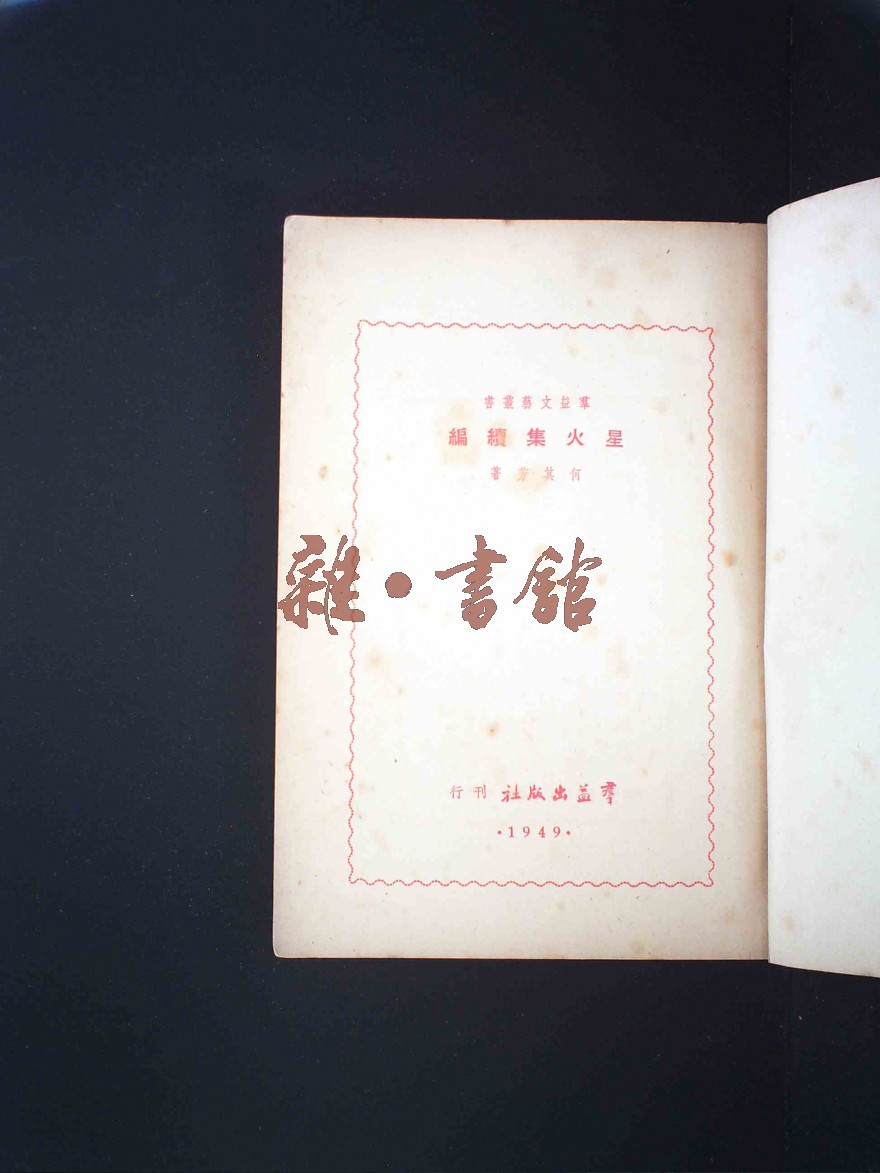 羣益文藝叢書
星火集續編
何其芳著
雜·書館
羣益出版社刊行
·1949·